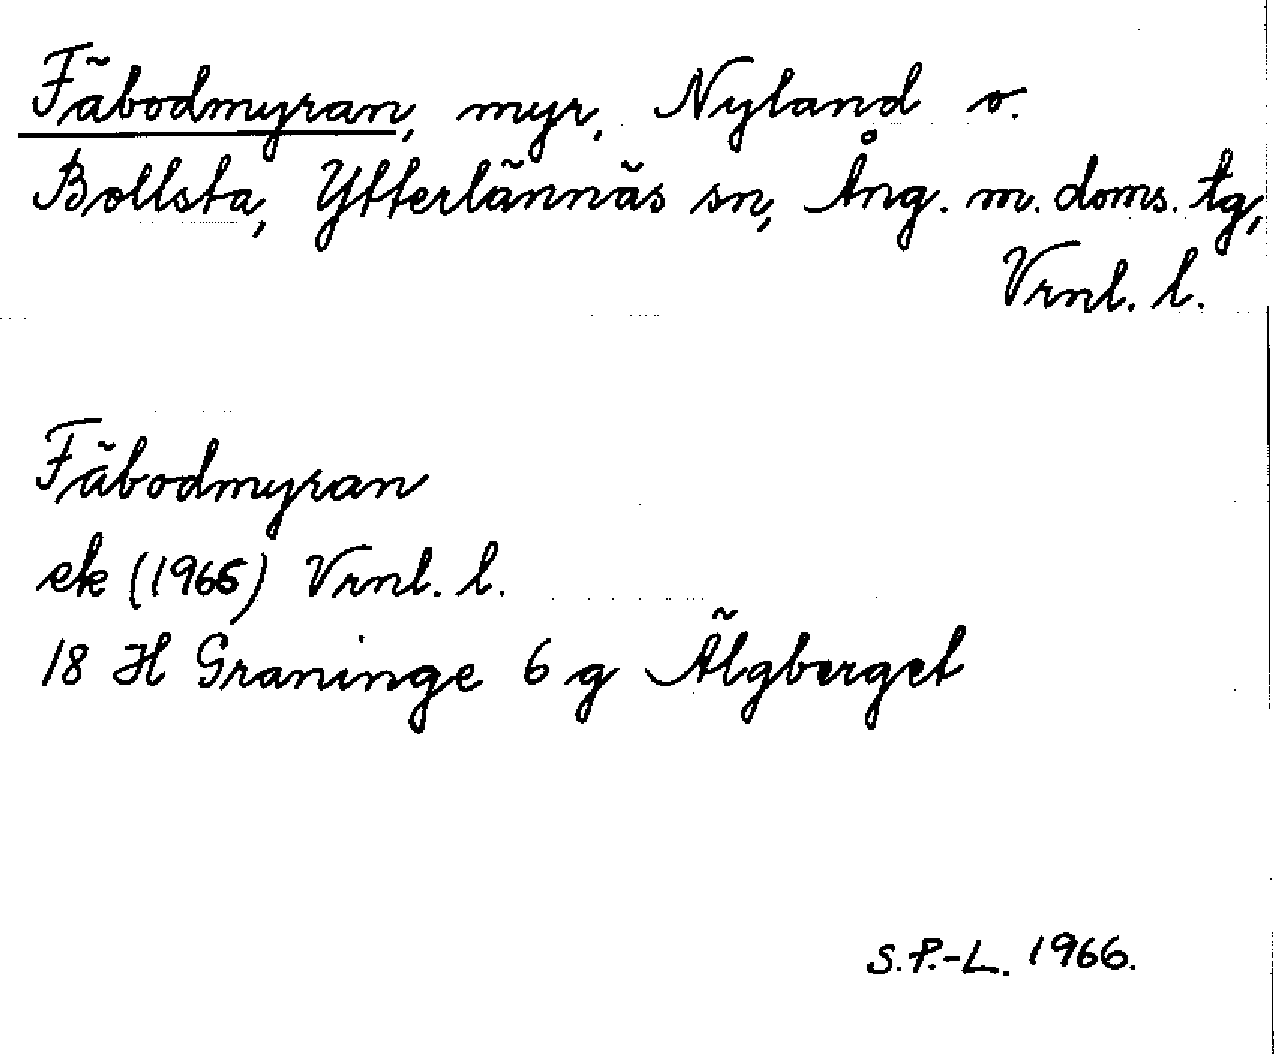 Fäbodmyran, myr, Nyland o.
Bollsta, Ytterlännäs sn, Ång. m. doms. tg,
Vrnl. l.
Fäbodmyran
ek (1965) Vrnl. l.
18 H Graninge 6 g Älgberget
S.P.-L. 1966.